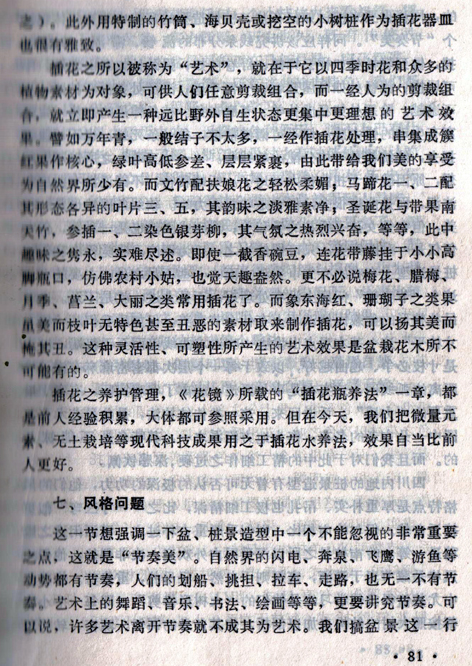 之）。此外用特制的竹筒、海贝壳或挖空的小树桩作为插花器皿
也很有雅致。
插花之所以被称为“艺术”，就在于它以四季时花和众多的
植物素材为对象，可供人们任意剪裁组合，而一经人为的剪裁组
合，就立即产生一种远比野外自生状态更集中更理想的艺术效
果。譬如万年青，一般结子不太多，一经作插花处理，串集成簇
红果作核心，绿叶高低参差、层层紧裹，由此带给我们美的享受
为自然界所少有。而文竹配扶娘花之轻松柔媚；马蹄花一、二配
其形态各异的叶片三、五，其韵味之淡雅素净；圣诞花与带果南
天竹，参插一、二染色银芽柳，其气氛之热烈兴奋，等等，此中
趣味之隽永，实难尽述。即使一截香碗豆，连花带藤挂于小小高
脚瓶口，仿佛农村小姑，也觉天趣盎然。更不必说梅花、腊梅、
月季、菖兰、大丽之类常用插花了。而象东海红、珊瑚子之类果
虽美而枝叶无特色甚至丑恶的素材取来制作插花，可以扬其美而
掩其丑。这种灵活性、可塑性所产生的艺术效果是盆栽花木所不
可能有的。
插花之养护管理，《花镜》所载的“插花瓶养法”一章，都
是前人经验积累，大体都可参照采用。但在今天，我们把微量元
素、无土栽培等现代科技成果用之于插花水养法，效果自当比前
人更好。
七、风格问题
这一节想强调一下盆、桩景造型中一个不能忽视的非常重要
之点，这就是“节奏美”。自然界的闪电、奔泉、飞鹰、游鱼等
动势都有节奏，人们的划船、挑担、拉车、走路，也无一不有节
奏。艺术上的舞蹈、音乐、书法、绘画等等，更要讲究节奏。可
以说，许多艺术离开节奏就不成其为艺术。我们搞盆景这一行
· 81 ·